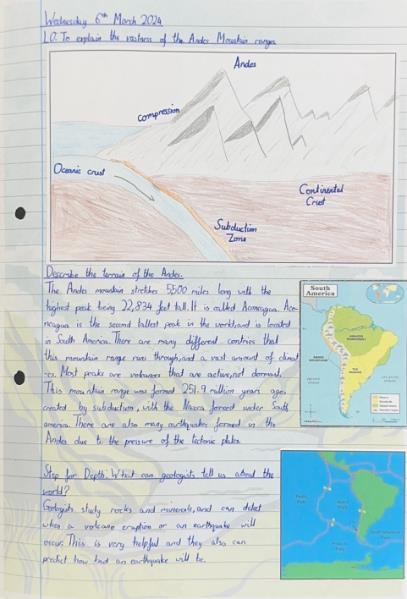 Wednesday 6th March 2024
LO: To explain the vastness of the Andes Mountain ranges
Andes
compression
Oceanic crust
Continental
Crust
Subduction
Zone
Describe the terrain of the Andes.
The Andes mountain stretches 5500 miles long with the
highest peak being 22,834 feet tall. It is called Aconcagua. Aco-
ncagua is the second tallest peak in the world, and is located
in South America. There are many different contries that
this mountain range runs through, and a vast amount of climat
-es. Most peaks are volcanos that are active, not dormant.
This mountain range was formed 251.9 million years ago,
created by subduction, with the Nazca forced under South
america. There are also many earthquakes formed in the
Andes due to the pressure of the tectonic plates.
South
America
Step for Depth: What can geologists tell us about the
world?
Geologists study rocks and minerals, and can detect
when a volcanic eruption or an earthquake will
occur. This is very helpful and they also can
predict how bad an earthquake will be.